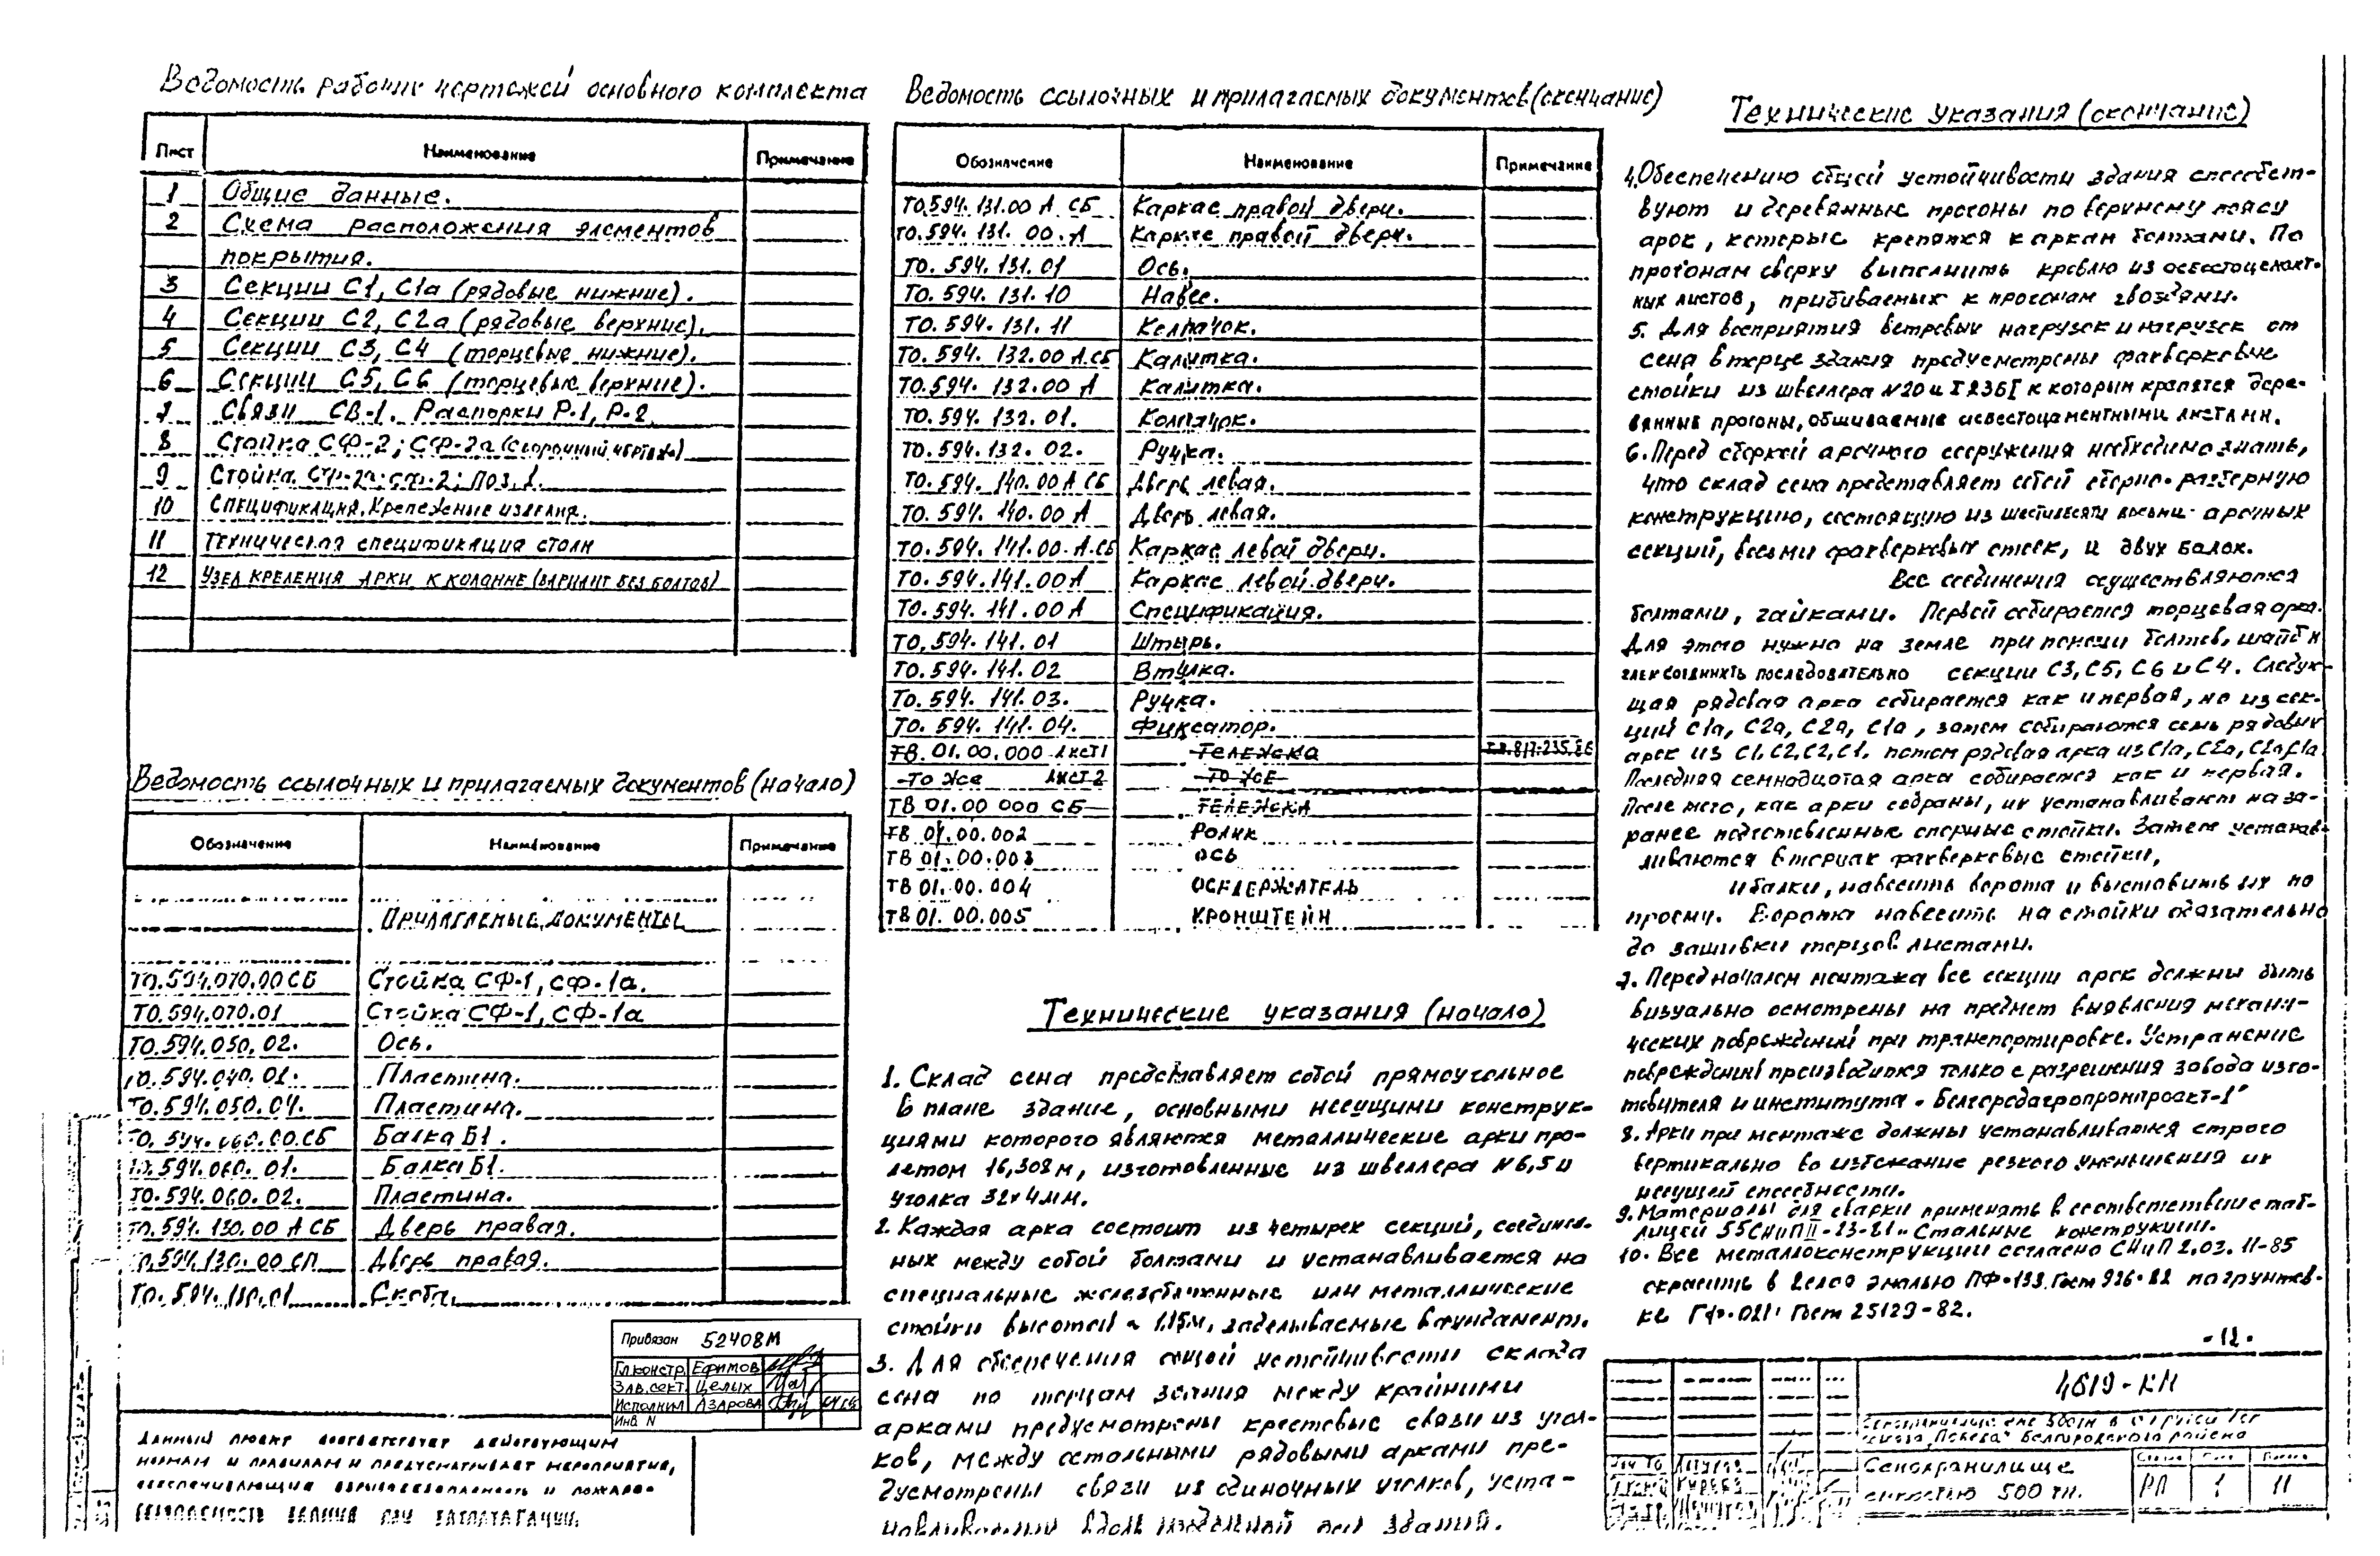 Ведомость рабочих чертежей основного комплекта
Лист Наименование Примечание
1 Общие данные.
2 Схема расположения элементов
покрытия.
3 Секции С1, С1а (рядовые нижние).
4 Секции С2, С2а (рядовые верхние).
5 Секции С3, С4 (торцевые нижние).
6 Секции С5, С6 (торцевые верхние).
7 Связи СВ-1. Распорки Р-1, Р-2.
8 Стойка СФ-2; СФ-2а (сборочный чертеж)
9 Стойка СФ-2а; СФ-2; поз. 1.
10 Спецификация. Крепежные изделия.
11 Техническая спецификация стали
12 Узел крепления арки к колонне (вариант без болтов)
Ведомость ссылочных и прилагаемых документов (начало)
Обозначение Наименование Примечание
Прилагаемые документы
ТО.594.070.00 СБ Стойка СФ-1, СФ-1а.
ТО.594.070.01 Стойка СФ-1, СФ-1а
ТО.594.050.02. Ось.
ТО.594.040.01. Пластина.
ТО.594.050.04. Пластина.
ТО.594.060.00.СБ Балка Б1.
ТО.594.060.01. Балка Б1.
ТО.594.060.02. Пластина.
ТО.594.130.00 А СБ Дверь правая.
ТО.594.130.00 СП Дверь правая.
ТО.594.130.01 Скоба.
Привязан 52408М
Гл.констр. Ефимов
Зав.сект. Целых
Исполнил Азарова
Инв. N
Данный проект соответствует действующим
нормам и правилам и предусматривает мероприятия,
обеспечивающие взрывобезопасность и пожаро-
безопасность здания при эксплуатации.
Ведомость ссылочных и прилагаемых документов (окончание)
Обозначение Наименование Примечание
ТО.594.131.00 А СБ Каркас правой двери.
ТО.594.131.00.А Каркас правой двери.
ТО.594.131.01 Ось.
ТО.594.131.10 Навес.
ТО.594.131.11 Колпачок.
ТО.594.132.00 А.СБ Калитка.
ТО.594.132.00 А Калитка.
ТО.594.132.01. Колпачок.
ТО.594.132.02. Ручка.
ТО.594.140.00 А СБ Дверь левая.
ТО.594.140.00 А Дверь левая.
ТО.594.141.00.А.СБ Каркас левой двери.
ТО.594.141.00 А Каркас левой двери.
ТО.594.141.00 А Спецификация.
ТО.594.141.01 Штырь.
ТО.594.141.02 Втулка.
ТО.594.141.03. Ручка.
ТО.594.141.04. Фиксатор.
ТВ.01.00.000 лист1 Тележка Т.П.817-235.86
То же лист 2 То же
ТВ 01.00 000 СБ Тележка
ТВ 01.00.002 Ролик
ТВ 01.00.003 Ось
ТВ 01.00.004 Оседержатель
ТВ 01.00.005 Кронштейн
Технические указания (начало)
1. Склад сена представляет собой прямоугольное
в плане здание, основными несущими конструк-
циями которого являются металлические арки про-
летом 16,308 м, изготовленные из швеллера N 6,5 и
уголка 32х4 мм.
2. Каждая арка состоит из четырех секций, соединен-
ных между собой болтами и устанавливается на
специальные железобетонные или металлические
стойки высотой ~ 1.15м, заделываемые в фундамент.
3. Для обеспечения общей устойчивости склада
сена по торцам здания между крайними
арками предусмотрены крестовые связи из угол-
ков, между остальными рядовыми арками пре-
дусмотрены связи из одиночных уголков, уста-
навливаемых вдоль продольной оси здания.
Технические указания (окончание)
4. Обеспечению общей устойчивости здания способст-
вуют и деревянные прогоны по верхнему поясу
арок, которые крепятся к аркам болтами. По
прогонам сверху выполнить кровлю из асбестоцемент-
ных листов, прибиваемых к прогонам гвоздями.
5. Для восприятия ветровых нагрузок и нагрузок от
сена в торце здания предусмотрены фахверковые
стойки из швеллера N20 и I 23Б1 к которым крепятся дере-
вянные прогоны, обшиваемые асбестоцементными листами.
6. Перед сборкой арочного сооружения необходимо знать,
что склад сена представляет собой сборно-разборную
конструкцию, состоящую из шестидесяти восьми арочных
секций, восьми фахверковых стоек, и двух балок.
Все соединения осуществляются
болтами, гайками. Первой собирается торцевая арка.
Для этого нужно на земле при помощи болтов, шайб и
гаек соединить последовательно секции С3, С5, С6 и С4. Следую-
щая рядовая арка собирается как и первая, но из сек-
ций С1а, С2а, С2а, С1а, затем собираются семь рядовых
арок из С1, С2, С2, С1, потом рядовая арка из С1а, С2а, С2а, С1а.
Последняя семнадцатая арка собирается как и первая.
После того, как арки собраны, их устанавливают на за-
ранее подготовленные опорные стойки. Затем устанав-
ливаются в торцах фахверковые стойки,
и балки, навесить ворота и выставить их по
проему. Ворота навесить на стойки обязательно
до зашивки торцов листами.
7. Перед началом монтажа все секции арок должны быть
визуально осмотрены на предмет выявления механи-
ческих повреждений при транспортировке. Устранение
повреждений производится только с разрешения завода изго-
товителя и института "Белгородагропромпроект-1"
8. Арки при монтаже должны устанавливаться строго
вертикально во избежание резкого уменьшения их
несущей способности.
9. Материалы для сварки применять в соответствии с таб-
лицей 55 СНиП II-23-81 "Стальные конструкции.
10. Все металлоконструкции согласно СНиП 2.03.11-85
окрасить в 2 слоя эмалью ПФ-133 Гост 926-82 по грунтов-
ке ГФ-021 Гост 25129-82.
-12-
4619-КМ
Белгородского района
Сенохранилище
емкостью 500 тн.
РП 1 11